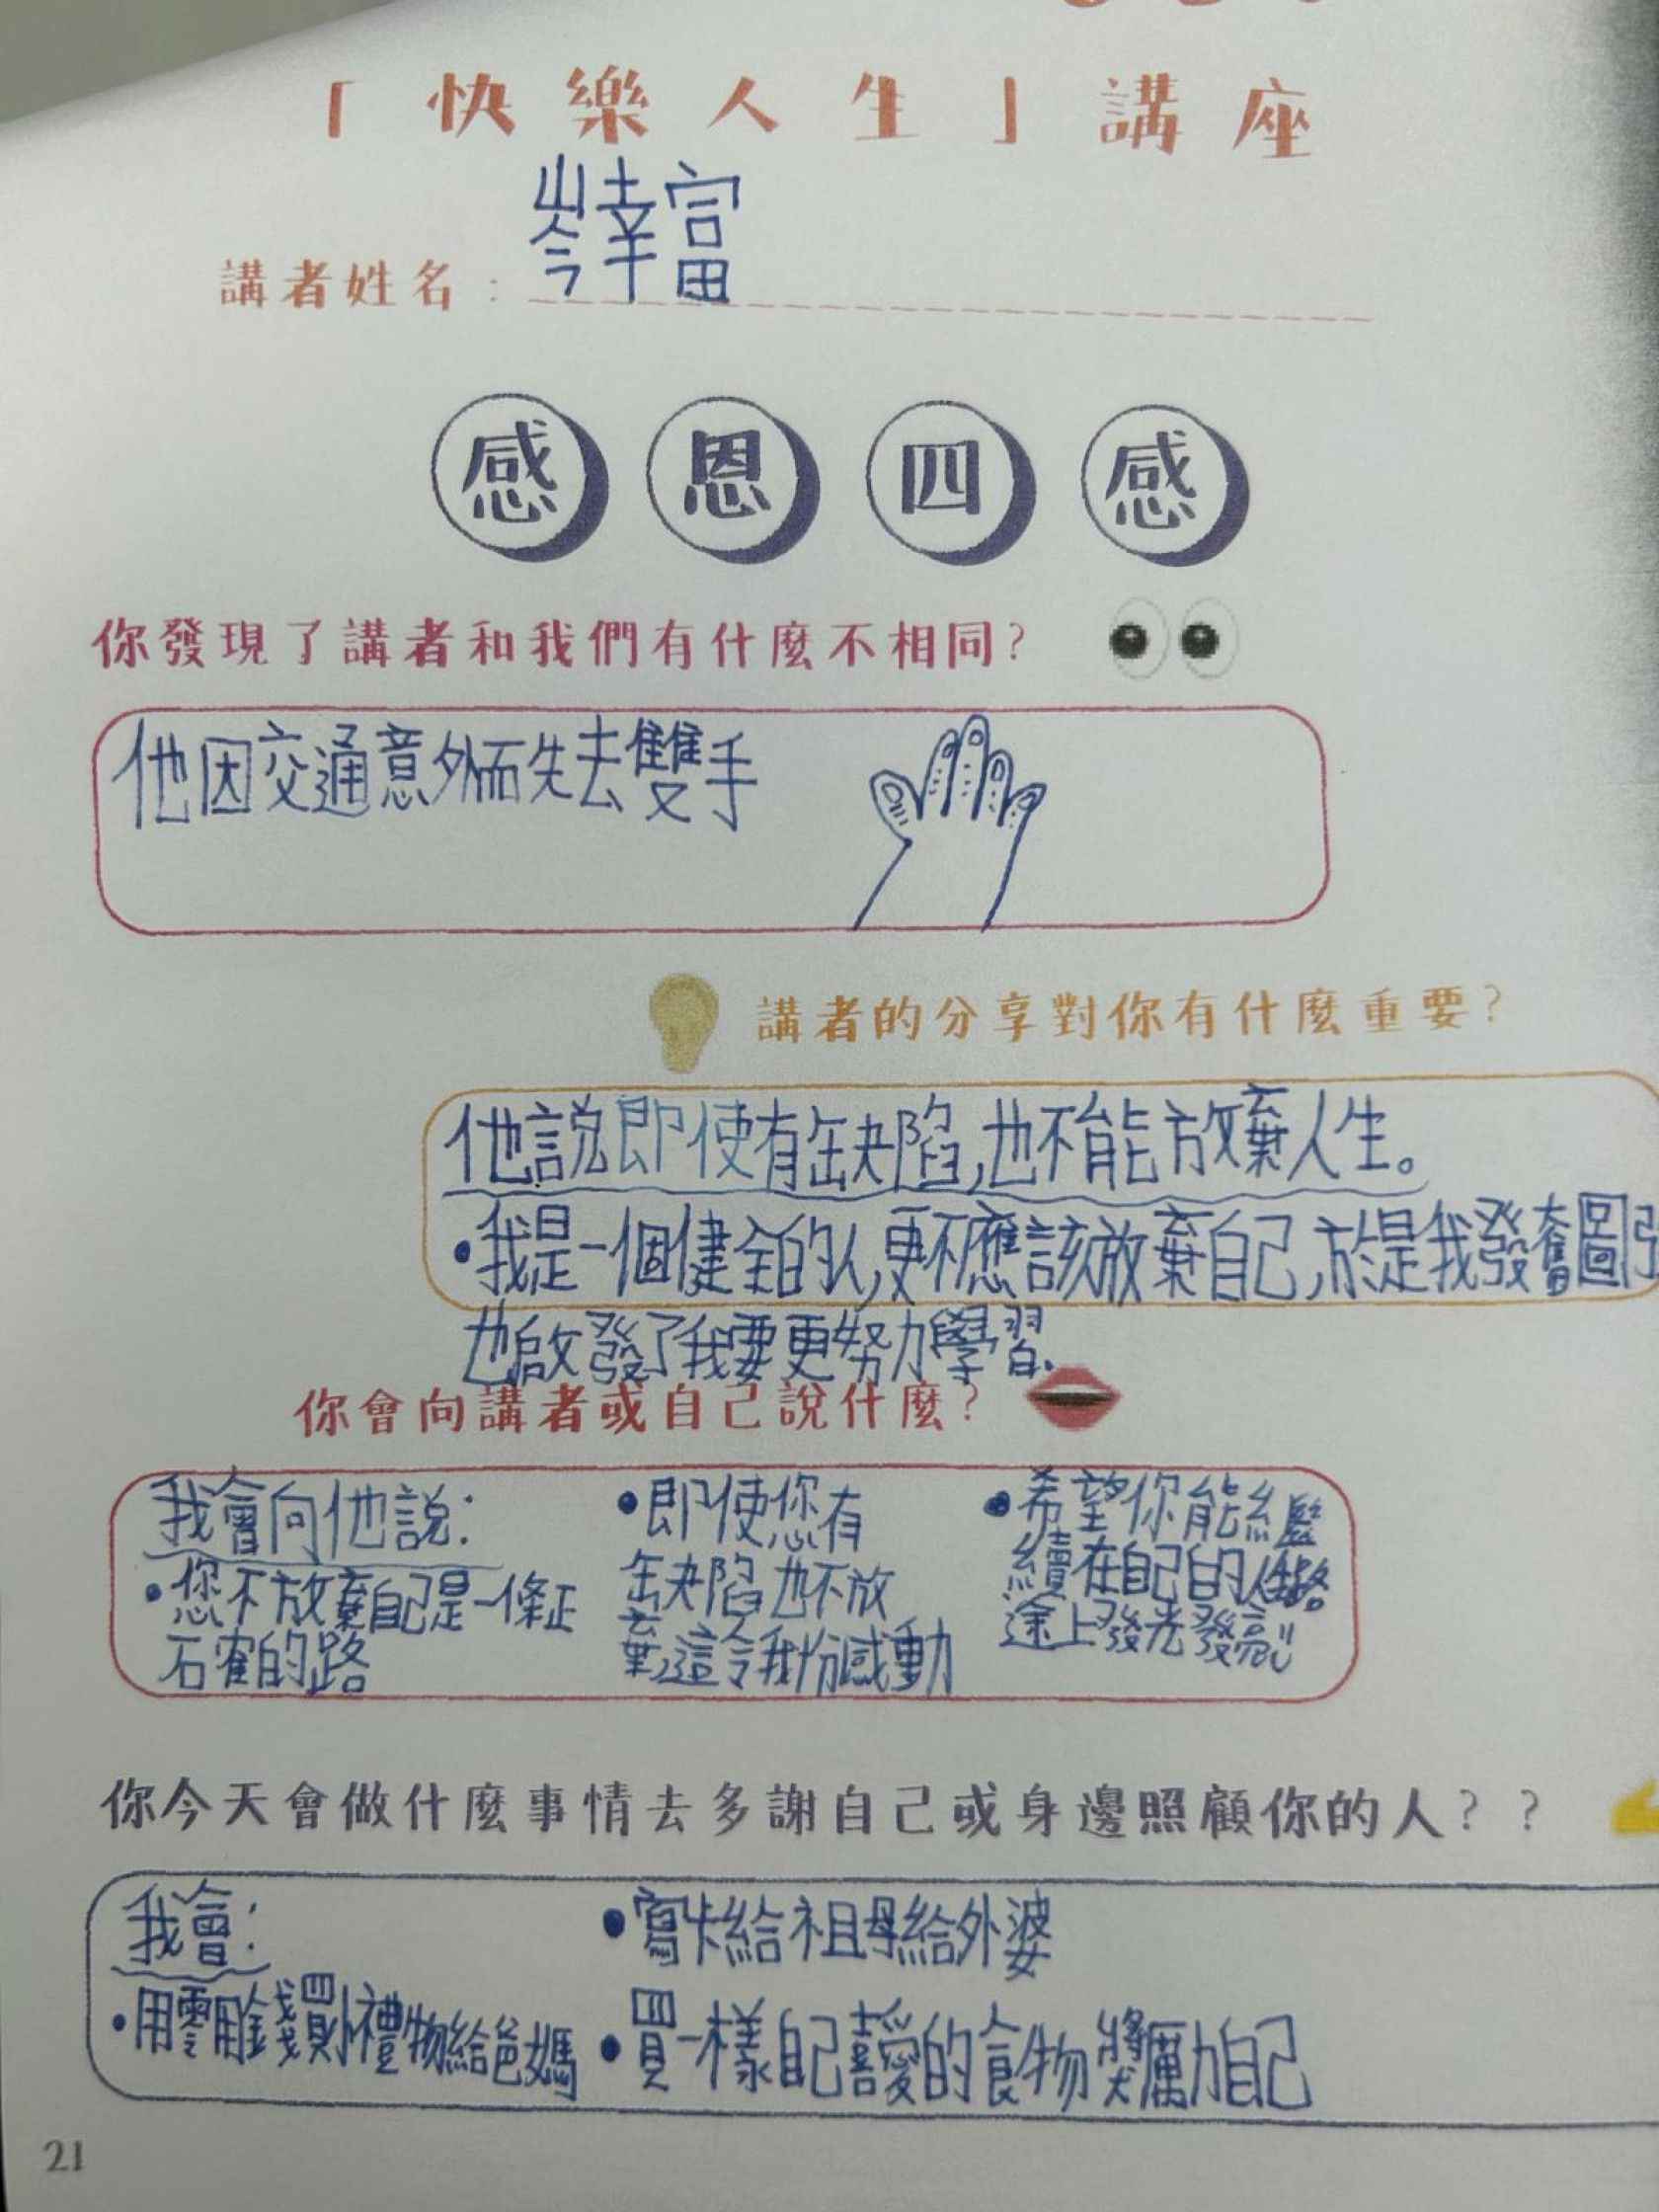 「快樂人生」講座
岑幸富
講者姓名：
感恩四感
你發現了講者和我們有什麼不相同？
他因交通意外而失去雙手
講者的分享對你有什麼重要？
他說即使有缺陷,也不能放棄人生。
•我是一個健全的人,更不應該放棄自己,於是我發奮圖
也啟發了我要更努力學習.
你會向講者或自己說什麼？
我會向他說：
•您不放棄自己是一條正
石宦的路
•即使您有
缺陷也不放
棄,這令我份感動
•希望你能繼
續在自己的人生路
途上發光發亮!!
你今天會做什麼事情去多謝自己或身邊照顧你的人？？
我會：
•用零用錢買小禮物給爸媽
•寫卡給祖母給外婆
•買一樣自己喜愛的食物獎勵自己
21